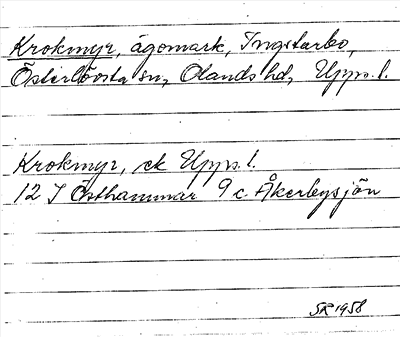 Krokmyr, ägomark, Ingstarbo,
Österlövsta sn, Olands hd, Upps. l.
Krokmyr, ek Upps. l.
12 I Östhammar 9 c Åkerbysjön
SR 1958